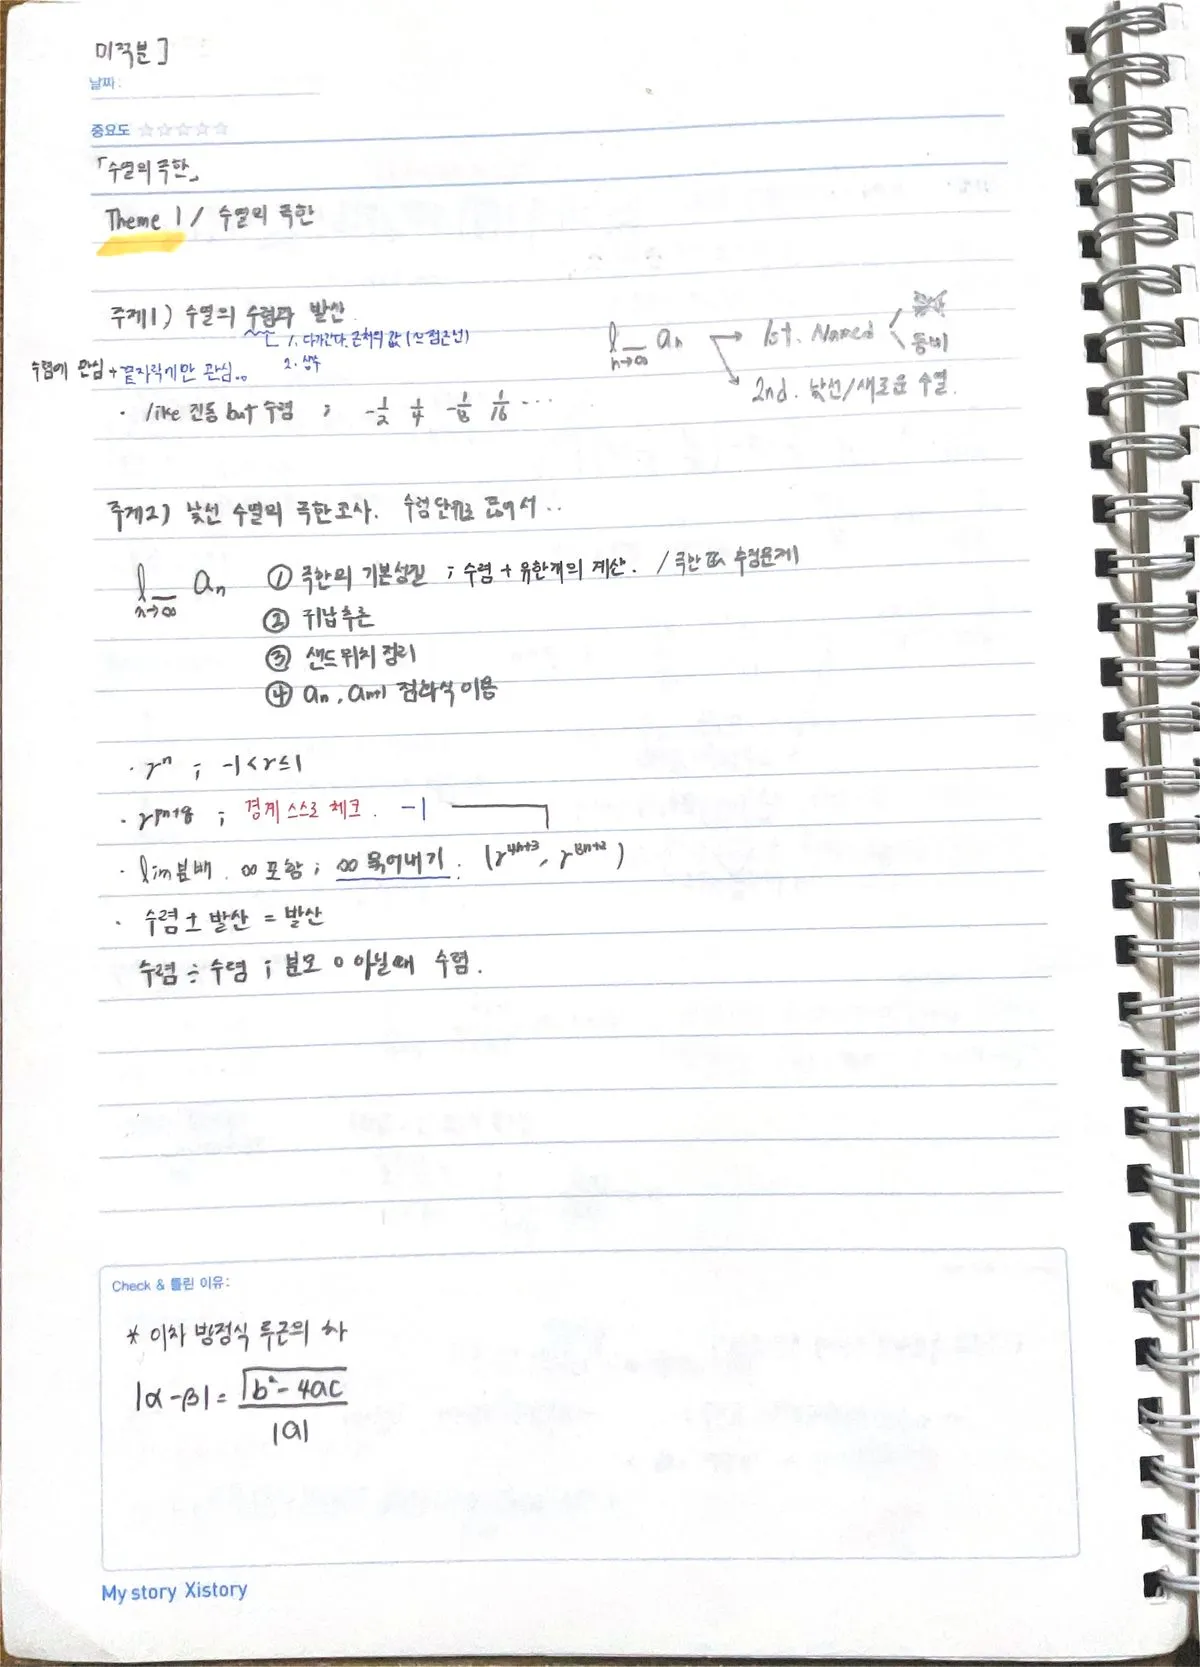 미적분]
날짜:
중요도 ☆☆☆☆☆
「수열의 극한」
Theme 1 / 수열의 극한
주제1) 수열의 수렴과 발산
1. 다가간다. 근처의 값 (≒점근선)
2. 상수
수렴에 관심 + 끝자락에만 관심..
lim n→∞ an → 1st. Named
등비
2nd. 낯선/새로운 수열.
· like 진동 but 수렴 ; -1/2 1/4 -1/8 1/16 ...
주제2) 낯선 수열의 극한조사. 수렴단위로 ..
lim n→∞ an
① 극한의 기본성질 ; 수렴 + 유한개의 계산. / 극한
② 귀납추론
③ 샌드위치 정리
④ an, an+1 점화식 이용
· r^n ; -1<r≤1
· r^pn+q ; 경계 스스로 체크. -1
· lim분배. ∞ 포함 ; ∞ 묶어내기. (r^4n+3, r^8n+2)
· 수렴 ± 발산 = 발산
수렴 ÷ 수렴 ; 분모 0 아닐때 수렴.
Check & 틀린 이유:
* 이차 방정식 두근의 차
|α-β| = √b²-4ac / |a|
My story Xistory